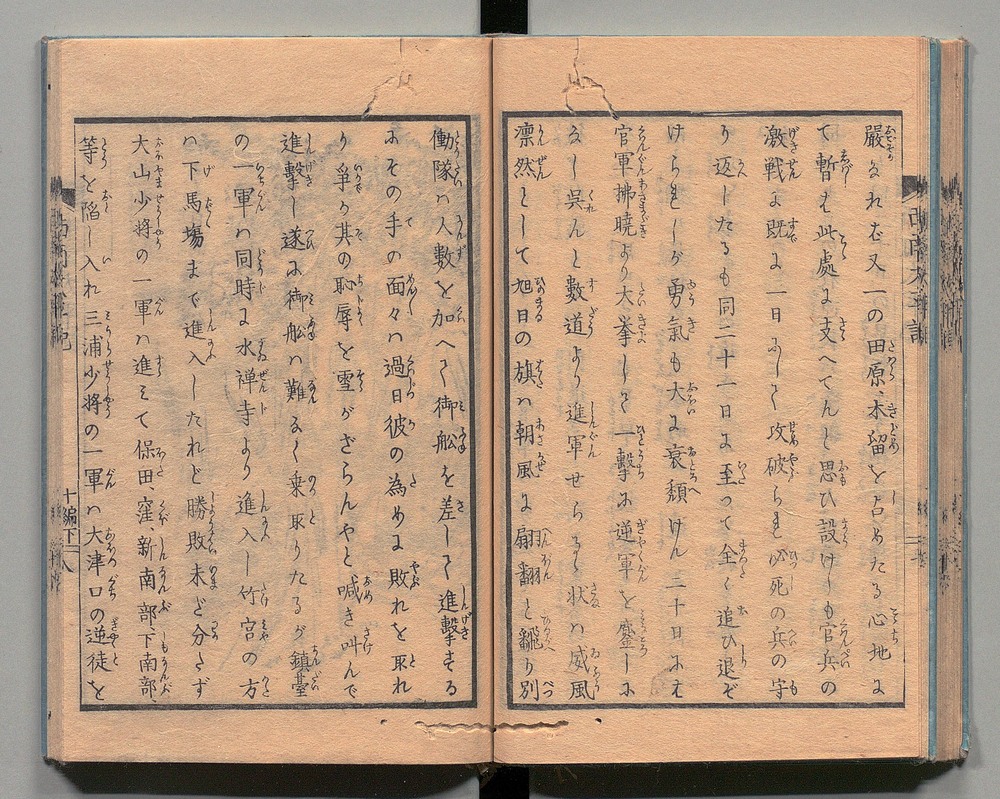 嚴なれむ又一の田原木留を占めたる心地に
て暫も此處に支へてんと思ひ設けしも官兵の
激戦に既に一日にして攻破られ必死の兵の守
り返したるも同二十一日に至つて全く追ひ退ぞ
けられしが勇氣も大に衰頽けん二十日にも
官軍拂曉より大擧して一撃に逆軍を鏖しに
なし呉んと數道より進軍せらるゝ状ハ威風
凛然として旭日の旗ハ朝風に翩翻と飜り別
働隊ハ人數を加へて御船を差して進撃する
にその手の面々ハ過日彼の為めに敗れを取れ
り爭か其の恥辱を雪がざらんやと喊き叫んで
進撃し遂に御船ハ難なく乗取りたるが鎮臺
の一軍ハ同時に水禅寺より進入し竹宮の方
ハ下馬塲まで進入したれど勝敗未ど分たず
大山少将の一軍ハ進んで保田窪新南部下南部
等を陥し入れ三浦少将の一軍ハ大津口の逆徒を
十編下
八